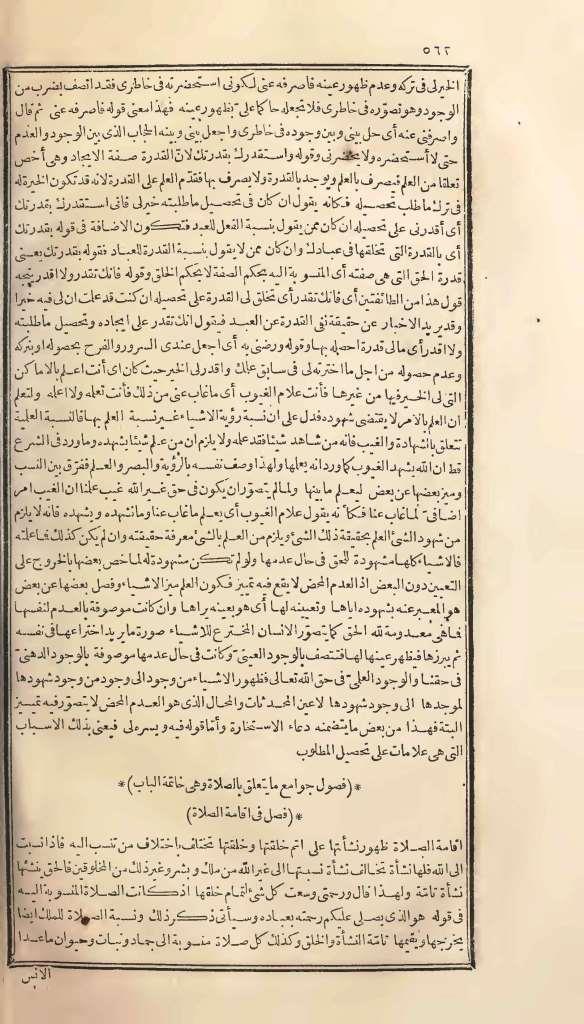 ٥٦٢
الخير لى فى تركه وعدم ظهور عينه فاصرفه عنى لكونى استحضرته فى خاطرى فقد اتصف بضرب من
الوجود وهو تصوّره فى خاطرى فلا تجعله حاكما علىّ بظهور عينه فهذا معنى قوله فاصرفه عنى ثم قال
واصرفنى عنه أى حل بينى وبين وجوده فى خاطرى واجعل بينى وبينه الحجاب الذى بين الوجود والعدم
حتى لا أستحضره ولا يحضرنى وقوله واستقدرك بقدرتك لانّ القدرة صفة الايجاد وهى أخص
تعلقا من العلم فيصرف بالعلم ويوجد بالقدرة ولا يصرف بها فقدّم العلم على القدرة لانه قد تكون الخيرة له
فى ترك ما طلب تحصيله فكانه يقول ان كان فى تحصيل ما طلبته خير لى فانى استقدرك بقدرتك
أى أقدرنى على تحصيله ان كان ممن يقول بنسبة الفعل للعبد فتكون الاضافة فى قوله بقدرتك
أى بالقدرة التى تخلقها فى عبادك وان كان ممن لا يقول بنسبة القدرة للعباد فقوله بقدرتك يعنى
قدرة الحق التى هى صفته أى المنسوبة اليه بحكم الصفة لا بحكم الخلق وقوله فانك تقدر ولا اقدر يتجه
قول هذا من الطائفتين أى فانك تقدر أى تخلق لى القدرة على تحصيله ان كنت قد علمت ان لى فيه خيرا
وقد يريد الاخبار عن حقيقة نفى القدرة عن العبد فيقول انك تقدر على ايجاده وتحصيل ما طلبته
ولا اقدر أى مالى قدرة احصله بها وقوله ورضنى به أى اجعل عندى السرور والفرح بحصوله او بتركه
وعدم حصوله من اجل ما اخترته لى فى سابق علمك واقدر لى الخير حيث كان اى أنت اعلم بالاماكن
التى لى الخير فيها من غيرها فأنت علام الغيوب أى ما غاب عنى من ذلك فأنت تعلمه ولا اعلمه ولتعلم
ان العلم بالامر لا يقتضى شهوده فدل على أن نسبة رؤية الاشياء غير نسبة العلم بها فالنسبة العلمية
تتعلق بالشهادة والغيب فانه من شاهد شيئا فقد علمه ولا يلزم ان من علم شيئا يشهده وما ورد فى الشرع
قط ان الله يشهد الغيوب كما ورد انه يعلمها ولهذا وصف نفسه بالرؤية والبصر والعلم ففرّق بين النسب
وميز بعضها عن بعض ليعلم ما بينها ولما لم يتصوّر ان يكون فى حق غير الله غيب علمنا ان الغيب امر
اضافىّ لما غاب عنا فكأنه يقول علام الغيوب أى يعلم ما غاب عنا وما نشهده ويشهده فانه لا يلزم
من شهود الشئ العلم بحقيقة ذلك الشئ ويلزم من العلم بالشئ معرفة حقيقته وان لم يكن كذلك فما علمته
فالاشياء كلها مشهودة للحق فى حال عدمها ولو لم تكن مشهودة له لما خص بعضها بالخروج على
التعيين دون البعض اذ العدم المحض لا يقع فيه تمييز فكون العلم ميز الاشياء وفصل بعضها عن بعض
هو المعبر عنه بشهوده اياها وتعيينه لها أى هو بعينه يراها وان كانت موصوفة بالعدم لنفسها
فما هى معدومة لله الحق كما يتصوّر الانسان المخترع للاشياء صورة ما يريد اختراعها فى نفسه
ثم يبرزها فيظهر عينها لها فتتصف بالوجود العينىّ وكانت فى حال عدمها موصوفة بالوجود الذهنىّ
فى حقنا والوجود العلمىّ فى حق الله تعالى فظهور الاشياء من وجود الى وجود من وجود شهودها
لموجدها الى وجود شهودها لاعين المحدثات والمحال الذى هو العدم المحض لا يتصوّر فيه تمييز
البتة فهذا من بعض ما يتضمنه دعاء الاستخارة وأما قوله فيه ويسره لى فيعنى بذلك الاسباب
التى هى علامات على تحصيل المطلوب
*(فصول جوامع ما يتعلق بالصلاة وهى خاتمة الباب)*
*(فصل فى اقامة الصلاة)
اقامة الصلاة ظهور نشأتها على اتم خلقتها وخلقتها تختلف باختلاف من تنسب اليه فاذا نسبت
الى الله فلها نشأة تخالف نشأة نسبتها الى غير الله من ملك وبشر وغير ذلك من المخلوقين فالحق ينشئها
نشأة تامّة ولهذا قال ورحمتى وسعت كل شئ لتمام خلقها اذ كانت الصلاة المنسوبة اليه
فى قوله هو الذى يصلى عليكم رحمته بعباده وسيأتى ذكر ذلك ونسبة الصلاة للملك ايضا
يخرجها ويقيمها تامّة النشأة والخلق وكذلك كل صلاة منسوبة الى جماد ونبات وحيوان ما عدا
الانس